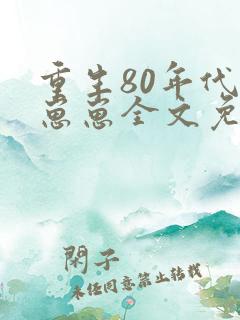 重生80年代
思思全文免
閑子
未任同意禁止转载